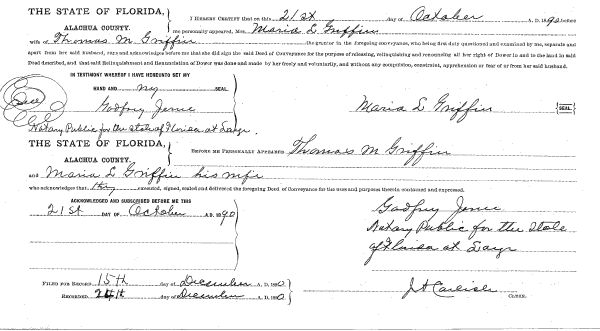 THE STATE OF FLORIDA,
ALACHUA COUNTY.
I HEREBY CERTIFY that on this 21st day of October A. D. 1890 before
me personally appeared Mrs. Maria L Griffin
wife of Thomas M Griffin the grantor in the foregoing conveyance, who being first duly questioned and examined by me, separate and
apart from her said husband, says and acknowledges before me that she did sign the said Deed of Conveyance for the purpose of releasing, relinquishing and renouncing all her right of Dower in and to the land in said
Deed described, and that said Relinquishment and Renunciation of Dower was done and made by her freely and voluntarily, and without any compulsion, constraint, apprehension or fear of or from her said husband.
IN TESTIMONY WHEREOF I HAVE HEREUNTO SET MY
HAND AND my SEAL
Godfrey
Maria L Griffin
SEAL
Notary Public for the state of Florida at Large.
THE STATE OF FLORIDA,
ALACHUA COUNTY.
BEFORE ME PERSONALLY APPEARED Thomas M Griffin
and Maria L Griffin his wife
who acknowledges that they executed, signed, sealed and delivered the foregoing Deed of Conveyance for the uses and purposes therein contained and expressed.
ACKNOWLEDGED AND SUBSCRIBED BEFORE ME THIS
21st DAY OF October A. D. 1890
Godfrey
Notary Public for the State
of Florida at Large
FILED FOR RECORD 15th day of December A. D. 1890
RECORDED 24th day of December A. D. 1890
J A Carlisle
CLERK.